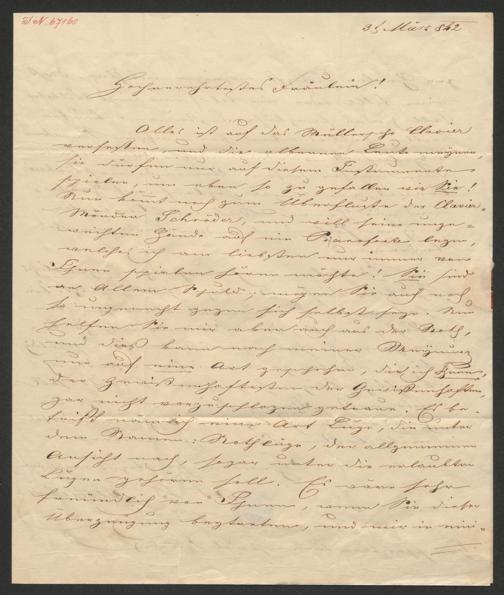 I.N. 67160
31 März 842
Hochverehrtestes Fräulein!
Alles ist auf das Müllersche Clavier
versessen, und die albernen Leute meynen,
sie dürfen nur auf diesem Instrumente
spielen, um eben so zu gefallen wie Sie!
Nun kömt noch zum Überfluße der Clavier-
Schröder, und will seine unge-
Hände auf ein Pianoforte legen,
welches ich am liebsten nur immer von
Ihnen spielen hören möchte! Sie sind
an Allem Schuld; mögen Sie auch noch
so ungerecht gegen sich selbst seyn. Nun
helfen Sie mir aber auch aus der Noth,
und dies kann nach meiner Meynung
nur auf eine Art geschehen, die ich Ihnen,
der Gewissenhaftesten der Gewissenhaften,
gar nicht vorzuschlagen getraue. Es be-
trifft nämlich eine Art Lüge, die unter
dem Namen: Nothlüge, der allgemeinen
Ansicht nach, sogar unter die erlaubten
Lügen gehören soll. Es wäre sehr
freundlich von Ihnen, wenn Sie dieser
Überzeugung beyträten, und mir in eini-